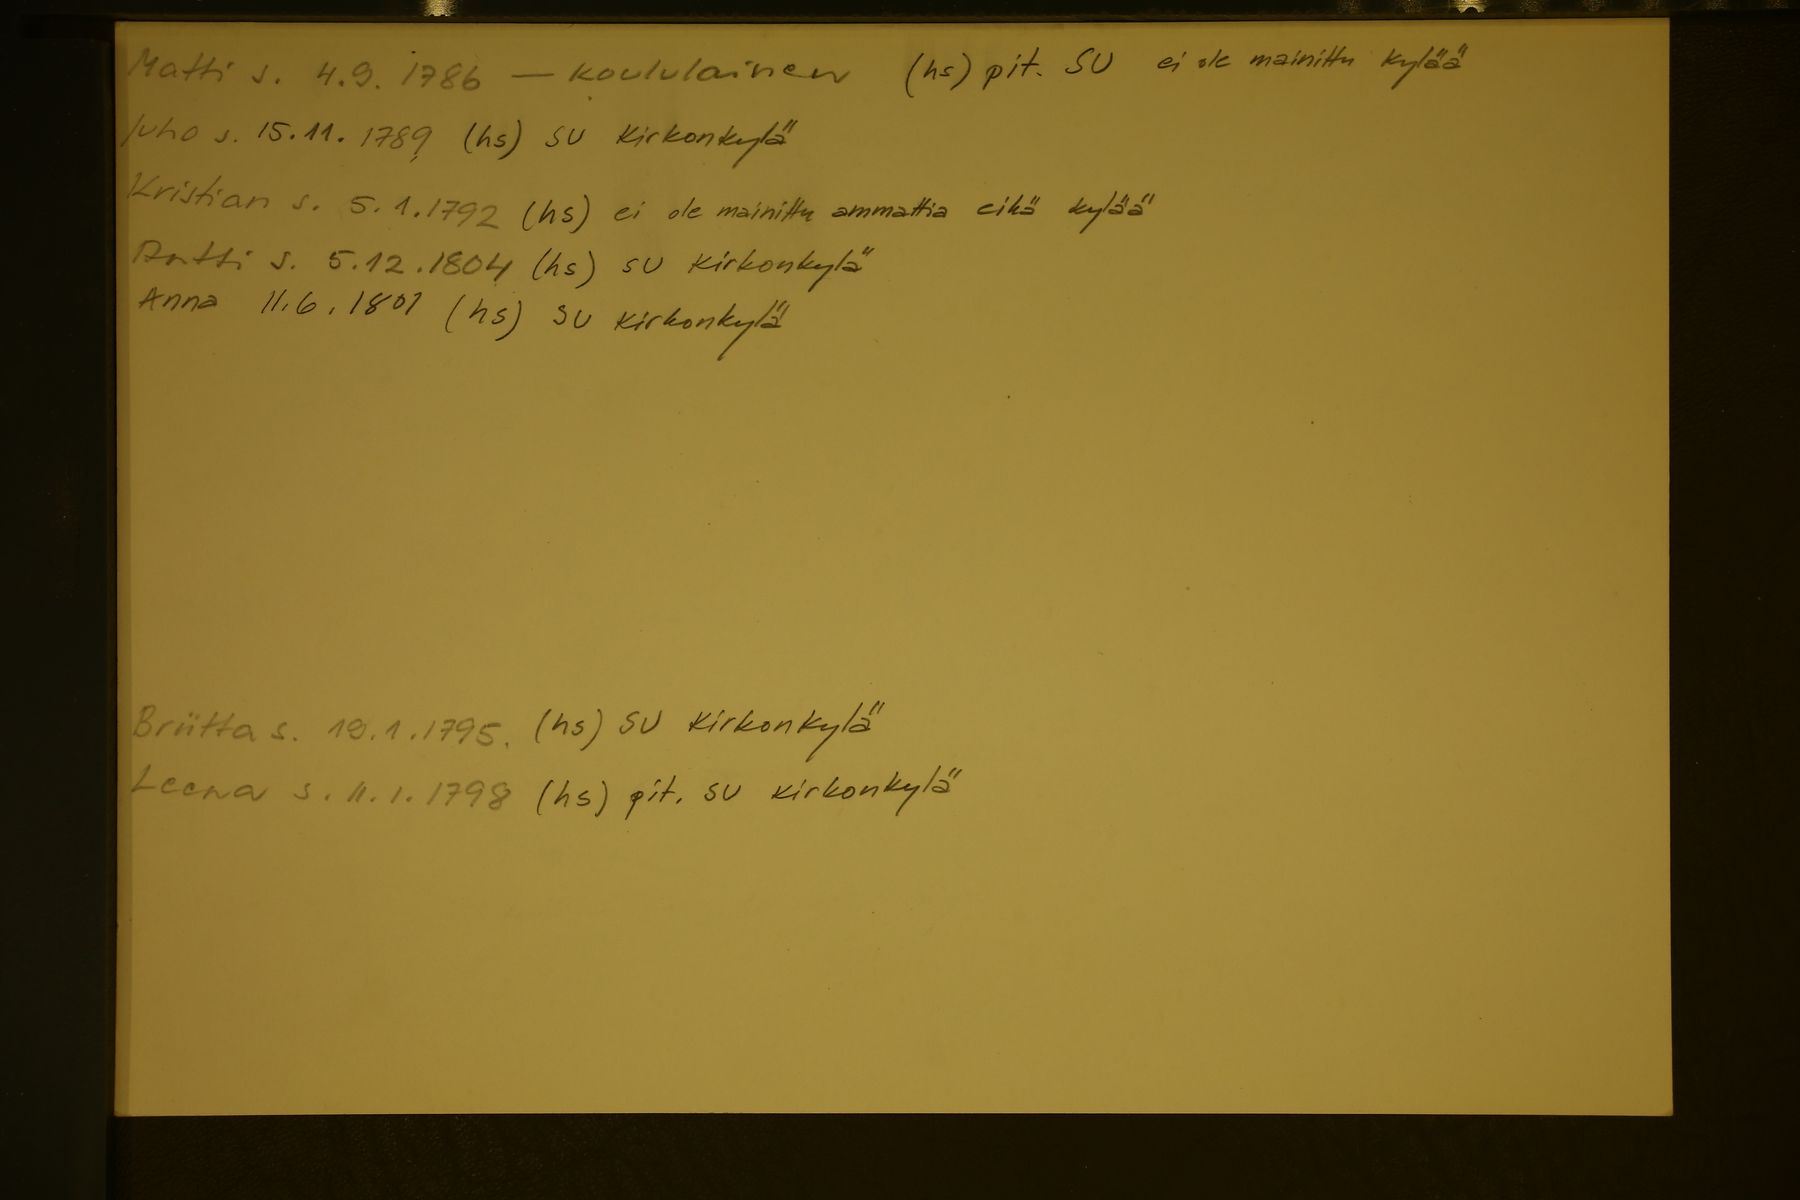 Matti s. 4.9. 1786 — koululainen (hs) pit. SU ei ole mainittu kylää
Juho s. 15.11. 1789 (hs) SU Kirkonkylä
Kristian s. 5.1.1792 (hs) ei ole mainittu ammattia eikä kylää
Antti s. 5.12.1804 (hs) SU Kirkonkylä
Anna 11.6.1801 (hs) SU Kirkonkylä
Briitta s. 19.1.1795. (hs) SU Kirkonkylä
Leena s. 11.1.1798 (hs) pit. SU Kirkonkylä